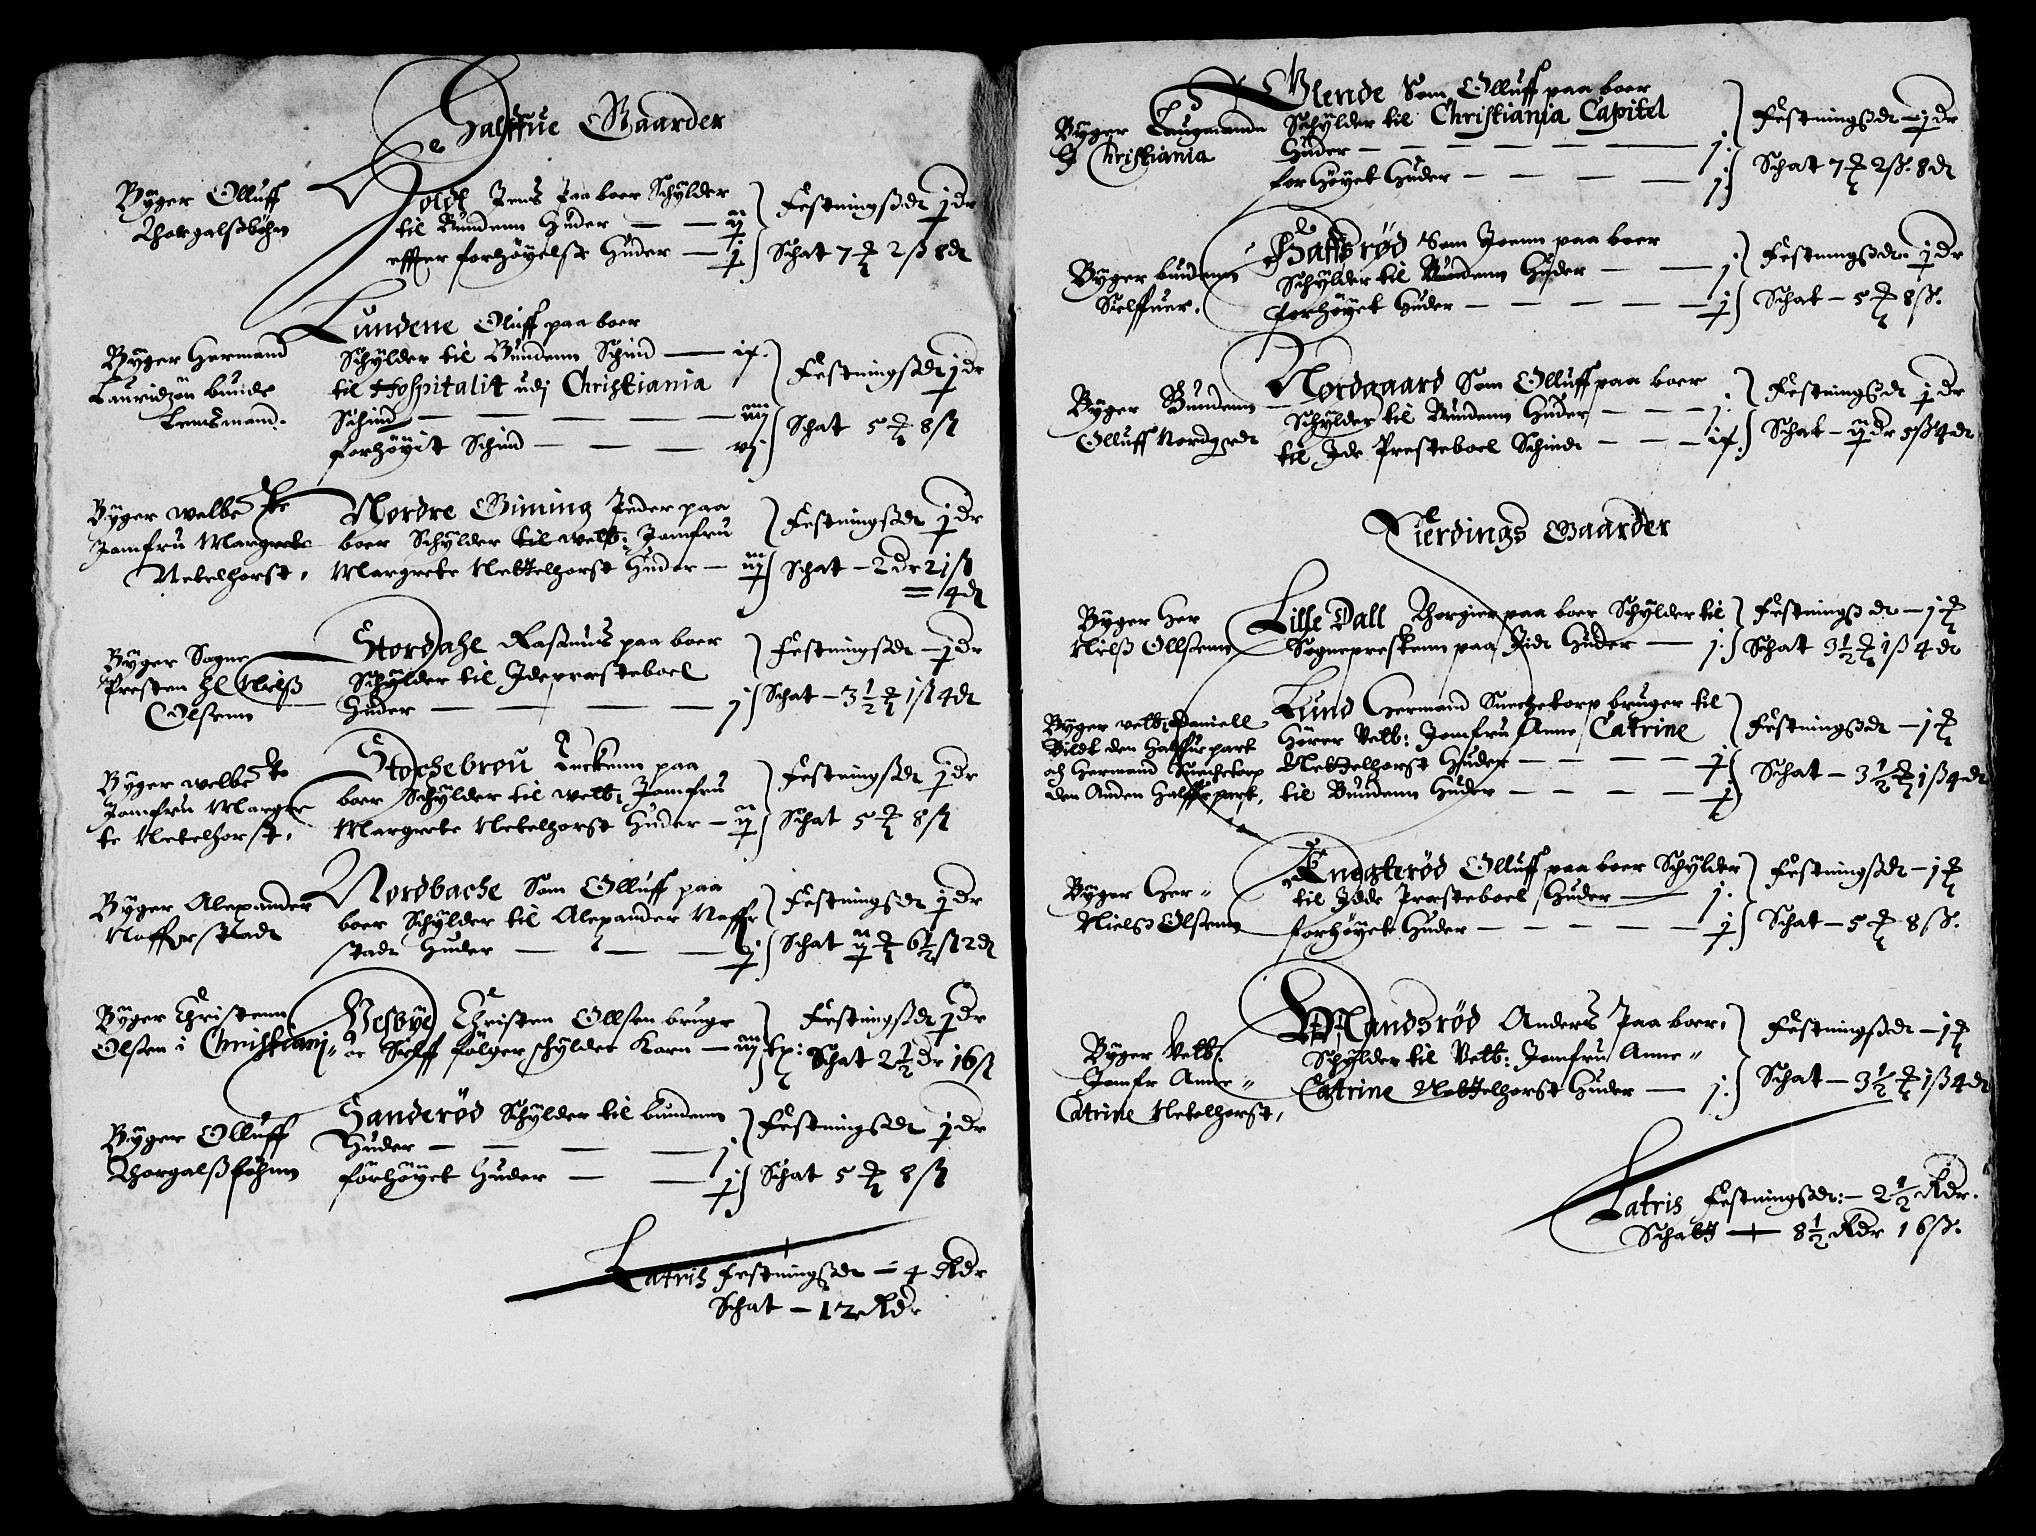 Halffue Gaarder
Byger Olluff
Thorgalsbøhn
Holdt Jens Paa boer Schylder
til Bundenn Huder — — ij
effter forhøyelse Huder — j
Festningsdt j dr
Schat 7 2 ß 8 dt
Byger Hermand
Lauridzøn bunde
Lensmand.
Lundene Oluff paa boer
Schylder til Bundenn Schind — ix.
til Hospitalit udj Christiania
Schind — — — — iiij
forhøyit Schind — — — vj
Festningsdt j dr
Schat 5 8 ß
Byger welbe
Jomfru Margrete
Netelhorst.
Nordre Gining Peder paa
boer Schylder til welb: Jomfru
Margrete Nettelhorst Huder — iij
Festningsdt j dr
Schat — 2 dr 21 ß
= 4 dt
Byger Sogne
Presten hl Nielß
Olsenn
Stordahl Rasmus paa boer
Schylder til Ide presteboel
Huder — — — — j
Festningsdt — j dr
Schat — 3½ 1 ß 4 dt
Byger welbe
Jomfru Margre
te Netelhorst.
Stochebrou paa
boer Schylder til welb: Jomfru
Margrete Netelhorst Huder — ij
Festningsdt j dr
Schat 5 8 ß
Byger Alexander
Nafferstadt
Nordbache Som Olluff paa
boer Schylder til Alexander Naffr
stadt Huder — — — j
Festningsdt j dr
Schat ij 6½ ß 2 dt
Byger Christenn
Olsen i Christiani
Vesbye Christen Ollsen bruge
oc Sielff følger schylder Korn — iij
Festningsdt j dr
Schat 2½ dr 16 ß
Byger Olluff
Thorgalsbøhnn
Handerød Schylder til bundenn
Huder — — — — j
forhøyet Huder — — j
Festningsdt j dr
Schat 5 8 ß
Latris Festningsdt — 4 Rdr
Schat — 12 Rdr
Byger Laugmandn
I Christiania
Glende Som Olluff paa boer
Schylder til Christiania Capitel
Huder — — — — — j.
forhøyet Huder — — — j
Festningsdt — j dr
Schat 7 2 ß. 8 dt
Byger bundenn
Sielffuer.
Haffsrød Som Joenn paa boer
Schylder til Bundenn Huder — — j
forhøyet Huder — — — — — j
Festningsdt. j dr
Schat — 5 8 ß.
Byger Bundenn
Olluff Nordgrdt
Nordgaard Som Olluff paa boer
Schylder til Bundenn Huder — — — j.
til Ide Presteboel Schindt — — — ix.
Festningsdt j dr
Schat — ij dr 5 ß 4 dt
Fierdings Gaarder
Byger Her
Nielß Ollsenn
Lille Dall Thorgier paa boer Schylder til
Sognepresten paa Ide Huder — j.
Festningsdt — 1
Schat 3½ 1 ß 4 dt
Byger velb: Daniell
Bildt den halffue part
och Hermand Suechetorp
den Anden halffue part.
Lund Hermand Suechetorp bruger til
Hører Velb: Jomfru Anne Catrine
Nettelhorst Huder — — — — j
til Bundenn Huder — — — — j
Festningsdt — 1
Schat — 3½ 1 ß 4 dt
Byger Her=
Niels Olsenn
Knegterød Olluff paa boer Schylder
til Idde Presteboel Huder — j.
forhøyet Huder — — — — — j
Festningsdt — 1
Schat — 5 8 ß.
Byger Velb:
Jomfr Anne=
Catrine Netelhorst.
Mandsrød Anders Paa boer.
Schylder til Velb: Jomfru Anne=
Catrine Nettelhorst Huder — j.
Festningsdt — 1
Schat — 3½ 1 ß 4 dt
Latris Festningsdt: — 2½ Rdr.
Schatt — 8½ Rdr 16 ß.